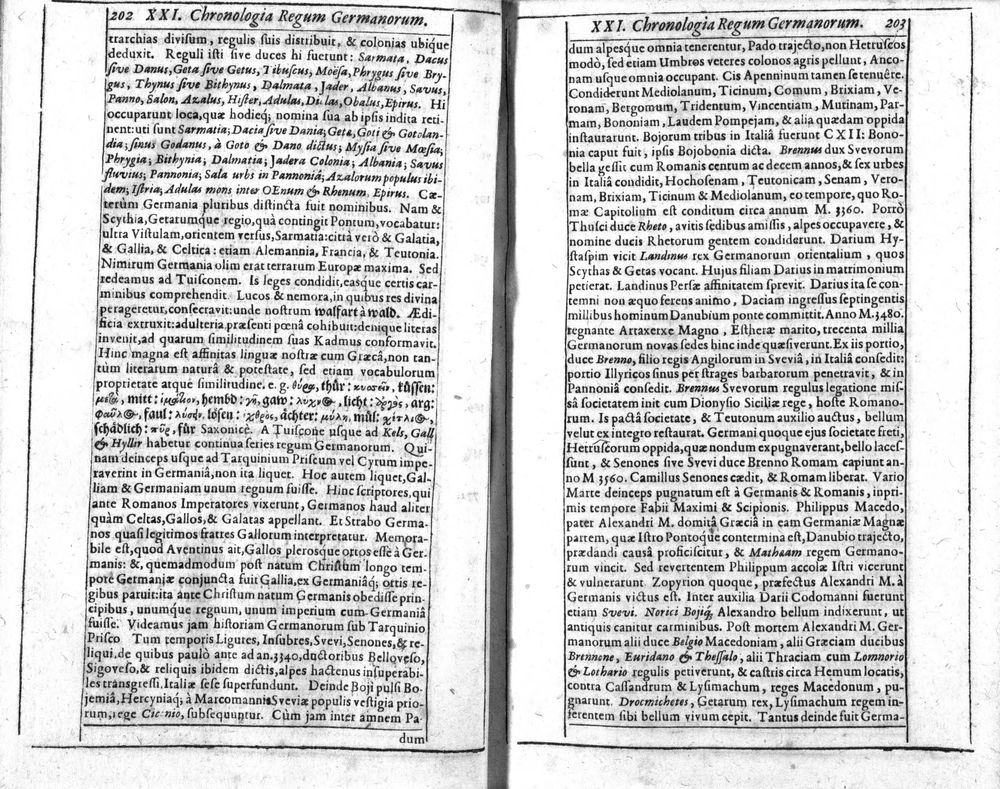 202 XXI. Chronologia Regum Germanorum.
trarchias divisum, regulis suis distribuit, & colonias ubique
deduxit. Reguli isti sive duces hi fuerunt: Sarmata, Dacus
sive Danus, Geta sive Getus, Tibuscus, Moësa, Phrygus sive Bry-
gus, Thynus sive Bithynus, Dalmata, Jader, Albanus, Savus,
Panno, Salon, Azalus, Hister, Adulas, Obalus, Epirus. Hi
occuparunt loca, quæ hodieq; nomina sua ab ipsis indita reti-
nent: uti sunt Sarmatia; Dacia sive Dania; Geta, Goti & Gotolan-
dia; sinus Godanus, à Goto & Dano dictus; Mysia sive Mœsia;
Phrygia; Bithynia; Dalmatia; Jadera Colonia; Albania; Savus
fluvius; Pannonia; Sala urbs in Pannonia; Azalorum populus ibi-
dem; Istria; Adulas mons inter OEnum & Rhenum, Epirus. Cæ-
terùm Germania pluribus distincta fuit nominibus. Nam &
Scythia, Getarumque regio, quà contingit Pontum, vocabatur:
ultra Vistulam, orientem versus, Sarmatia: citrà verò & Galatia,
& Gallia, & Celtica: etiam Alemannia, Francia, & Teutonia.
Nimirum Germania olim erat terrarum Europæ maxima. Sed
redeamus ad Tuisconem. Is leges condidit, easque certis car-
minibus comprehendit. Lucos & nemora, in quibus res divina
perageretur, consecravit: unde nostrum walfart à wald. Ædi-
ficia extruxit: adulteria præsenti pœnâ cohibuit: denique literas
invenit, ad quarum similitudinem suas Kadmus conformavit.
Hinc magna est affinitas linguæ nostræ cum Græca, non tan-
tùm literarum naturâ & potestate, sed etiam vocabulorum
proprietate atque similitudine. e. g. θύρα, thür: κυσεῖν, küssen:
hembd: γῆ, gaw: licht: arg:
faul: λύσην, lösen: ἐχθρὸς, ächter: μύλη, mül:
schädlich: πῦρ, für Saxonicè. A Tuiscone usque ad Kels, Gall
& Hyllir habetur continua series regum Germanorum. Qui-
nam deinceps usque ad Tarquinium Priscum vel Cyrum impe-
raverint in Germaniâ, non ita liquet. Hoc autem liquet, Gal-
liam & Germaniam unum regnum fuisse. Hinc scriptores, qui
ante Romanos Imperatores vixerunt, Germanos haud aliter
quàm Celtas, Gallos, & Galatas appellant. Et Strabo Germa-
nos quasi legitimos fratres Gallorum interpretatur. Memora-
bile est, quod Aventinus ait, Gallos plerosque ortos esse à Ger-
manis: &, quemadmodum post natum Christum longo tem-
pore Germaniæ conjuncta fuit Gallia, ex Germaniâq; ortis re-
gibus paruit: ita ante Christum natum Germanis obedisse prin-
cipibus, unumque regnum, unum imperium cum Germaniâ
fuisse. Videamus jam historiam Germanorum sub Tarquinio
Prisco Tum temporis Ligures, Insubres, Svevi, Senones, & re-
liqui, de quibus paulò ante ad an. 3340, ductoribus Belloveso,
Sigoveso, & reliquis ibidem dictis, alpes hactenus insuperabi-
les transgressi, Italiæ sese superfundunt. Deinde Boji pulsi Bo-
jemiâ, Hercyniaq; à Marcomannis Sveviæ populis vestigia prio-
rum, rege Cicenio, subsequuntur. Cùm jam inter amnem Pa-
dum
XXI. Chronologia Regum Germanorum. 203
dum alpesque omnia tenerentur, Pado trajecto, non Hetruscos
modò, sed etiam Umbros veteres colonos agris pellunt, Anco-
nam usque omnia occupant. Cis Apenninum tamen se tenuêre.
Condiderunt Mediolanum, Ticinum, Comum, Brixiam, Ve-
ronam, Bergomum, Tridentum, Vincentiam, Mutinam, Par-
mam, Bononiam, Laudem Pompejam, & alia quædam oppida
instaurarunt. Bojorum tribus in Italiâ fuerunt CXII: Bono-
nia caput fuit, ipsis Bojobonia dicta. Brennus dux Svevorum
bella gessit cum Romanis centum ac decem annos, & sex urbes
in Italiâ condidit, Hochosenam, Teutonicam, Senam, Vero-
nam, Brixiam, Ticinum & Mediolanum, eo tempore, quo Ro-
mæ Capitolium est conditum circa annum M. 3360. Porrò
Thusci duce Rheto, avitis sedibus amissis, alpes occupavere, &
nomine ducis Rhetorum gentem condiderunt. Darium Hy-
staspim vicit Landinus rex Germanorum orientalium, quos
Scythas & Getas vocant. Hujus filiam Darius in matrimonium
petierat. Landinus Persæ affinitatem sprevit. Darius ita se con-
temni non æquo ferens animo, Daciam ingressus septingentis
millibus hominum Danubium ponte committit. Anno M. 3480.
regnante Artaxerxe Magno, Estheræ marito, trecenta millia
Germanorum novas sedes hinc inde quæsiverunt. Ex iis portio,
duce Brenno, filio regis Angilorum in Sveviâ, in Italiâ consedit:
portio Illyricos sinus per strages barbarorum penetravit, & in
Pannoniâ consedit. Brennus Svevorum regulus legatione mis-
sâ societatem init cum Dionysio Siciliæ rege, hoste Romano-
rum. Is pactâ societate, & Teutonum auxilio auctus, bellum
velut ex integro restaurat. Germani quoque ejus societate freti,
Hetruscorum oppida, quæ nondum expugnaverant, bello laces-
sunt, & Senones sive Svevi duce Brenno Romam capiunt an-
no M 3560. Camillus Senones cædit, & Romam liberat. Vario
Marte deinceps pugnatum est à Germanis & Romanis, inpri-
mis tempore Fabii Maximi & Scipionis. Philippus Macedo,
pater Alexandri M. domitâ Græciâ in eam Germaniæ Magnæ
partem, quæ Istro Pontoque contermina est, Danubio trajecto,
prædandi causâ proficiscitur, & Matheam regem Germano-
rum vincit. Sed revertentem Philippum accolæ Istri vicerunt
& vulnerarunt. Zopyrion quoque, præfectus Alexandri M. à
Germanis victus est. Inter auxilia Darii Codomanni fuerunt
etiam Svevi. Norici Bojiq; Alexandro bellum indixerunt, ut
antiquis canitur carminibus. Post mortem Alexandri M. Ger-
manorum alii duce Belgio Macedoniam, alii Græciam ducibus
Brennone, Euridano & Thessalo, alii Thraciam cum Lomnorio
& Lothario regulis petiverunt, & castris circa Hemum locatis,
contra Cassandrum & Lysimachum, reges Macedonum, pu-
gnarunt. Drocmichetes, Getarum rex, Lysimachum regem in-
ferentem sibi bellum vivum cepit. Tantus deinde fuit Germa-